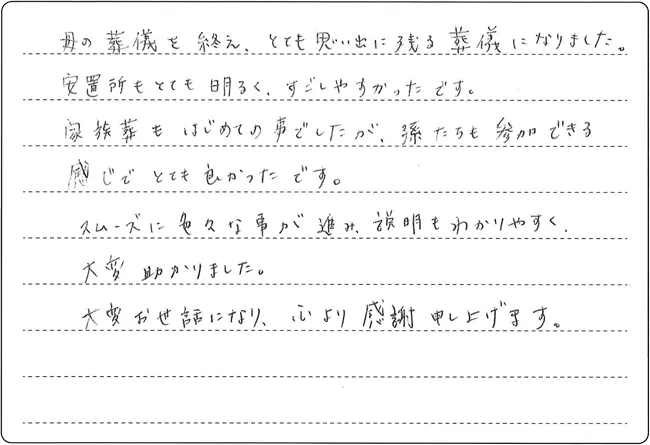 母の葬儀を終え、とても思い出に残る葬儀になりました。
安置所もとても明るく、すごしやすかったです。
家族葬もはじめての事でしたが、孫たちも参加できる
感じでとても良かったです。
スムーズに色々な事が進み、説明もわかりやすく、
大変助かりました。
大変お世話になり、心より感謝申し上げます。